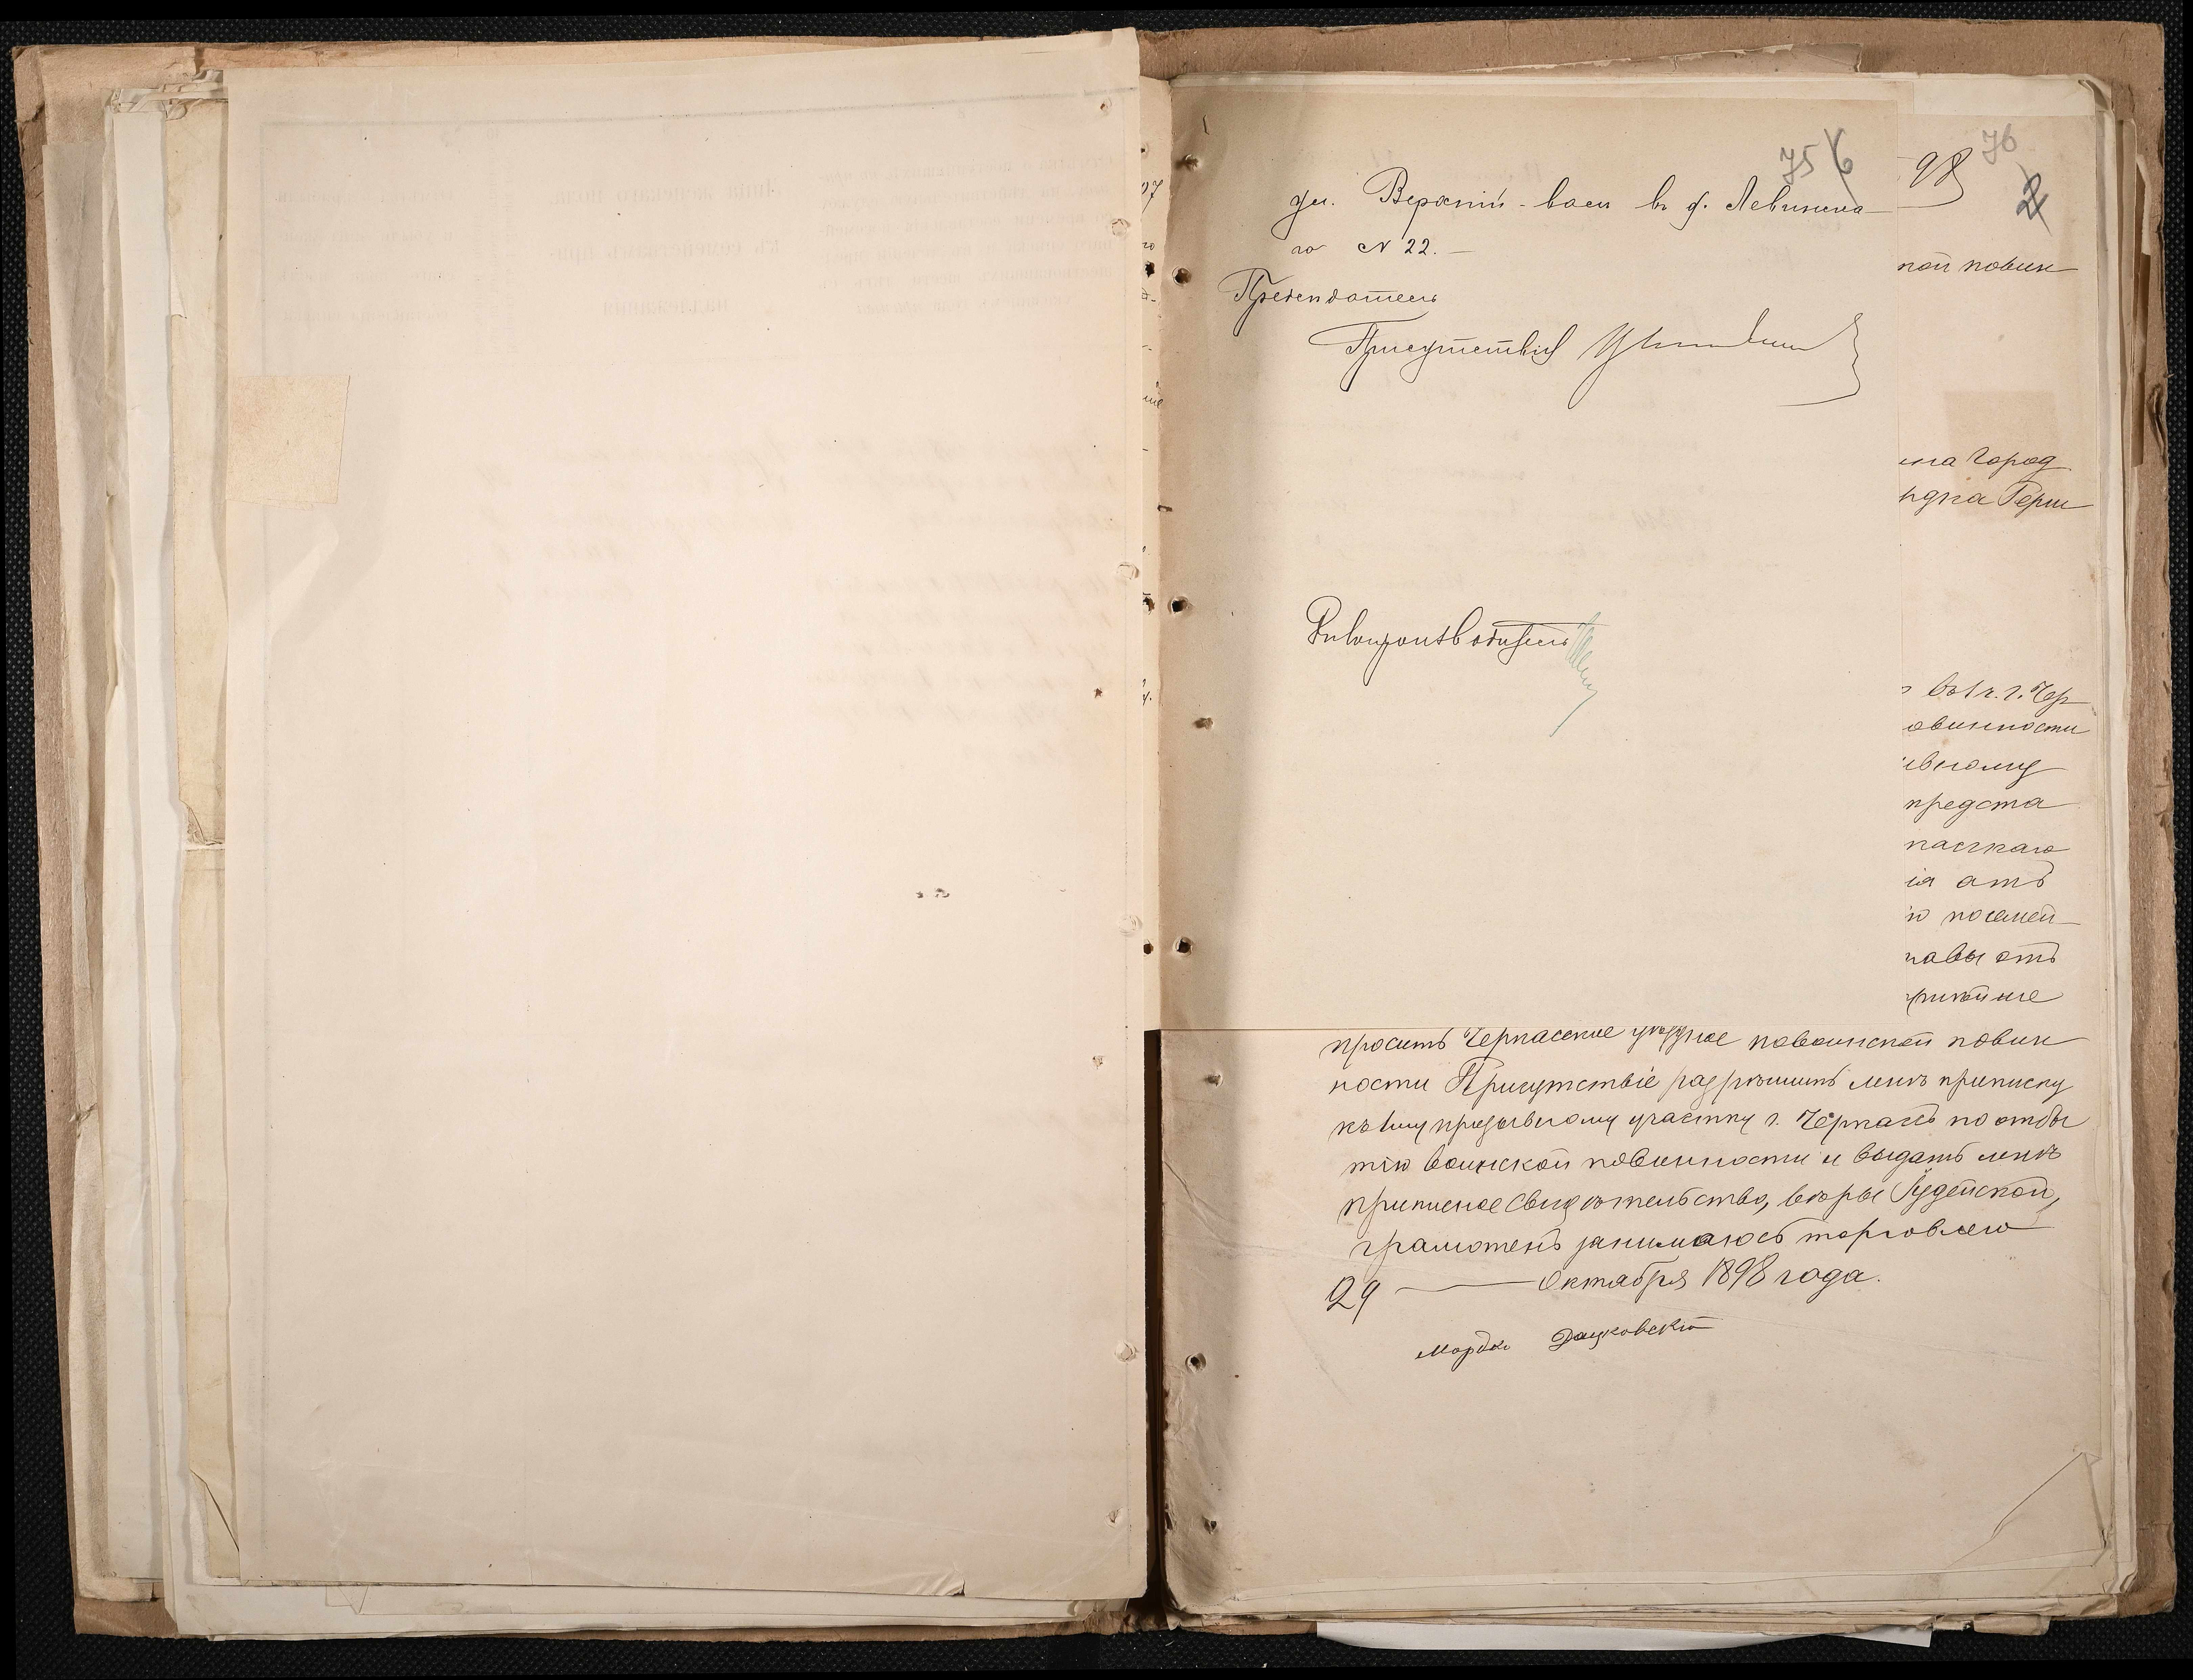 75 6
ул. Верхній-валъ въ д. Левинска
го № 22.
Председатель
Присутствія
Дѣлопроизводитель
98 76
2
кой повин
на Город
рдка Герш
въ 1 к. г. Чер
овинности
ывному
предста
касскаго
ія отъ
ю посемей
авы отъ
просить Черкасское уѣздное повоинской повин
ности Присутствіе разрѣшить мнѣ приписку
къ 1му призывному участку г. Черкасъ по отбы
тію воинской повинности и выдать мнѣ
приписное свидѣтельство, вѣры Іудейской,
грамотенъ занимаюсь торговлею
29 — Октября 1898 года.
Мордко Дацковскій